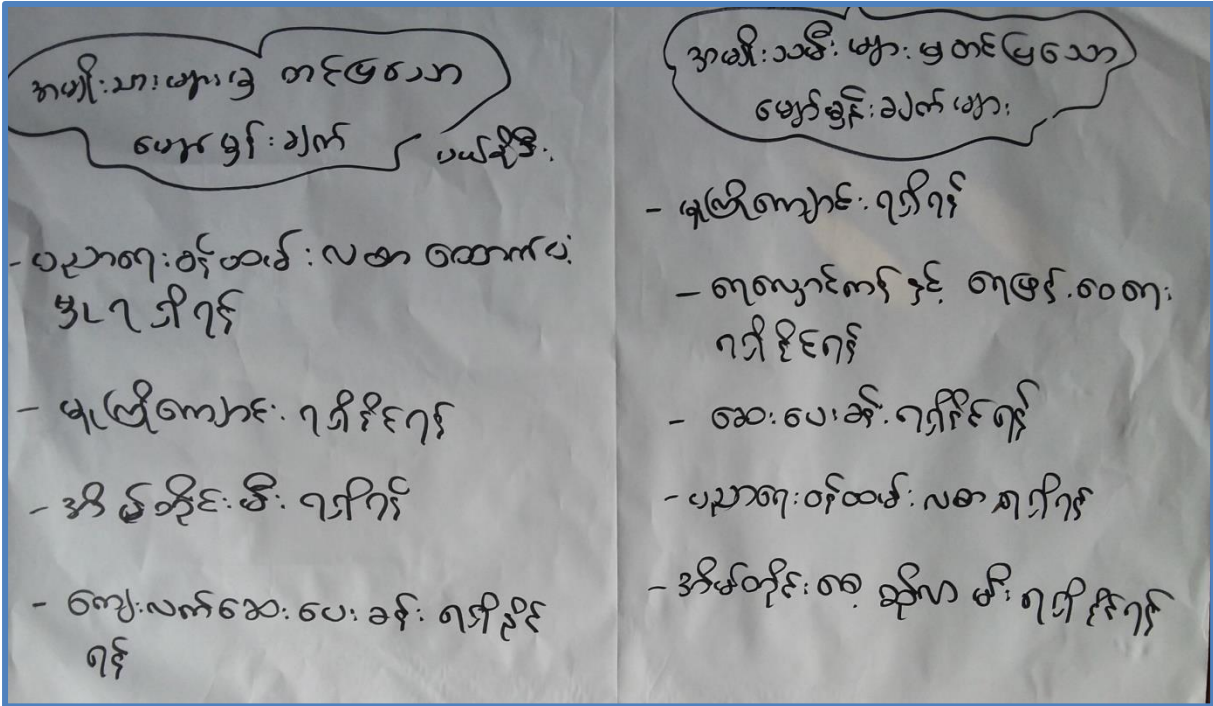 အမျိုးသားများမှ တင်ပြသော
မျှော်မှန်းချက်
- ပညာရေးဝန်ထမ်းလစာ ထောက်ပံ့
မှု ရရှိရန်
- မူကြိုကျောင်း ရရှိနိုင်ရန်
- အိမ်တိုင်းမီးရရှိရန်
- ကျေးလက်ဆေးပေးခန်း ရရှိနိုင်
ရန်
အမျိုးသမီးများမှတင်ပြသော
မျှော်မှန်းချက်များ
- မူကြိုကျောင်းရရှိရန်
- ရေလှောင်ကန်နှင့် ရေဖြန့်ဝေရေး
ရရှိနိုင်ရန်
- ဆေးပေးခန်းရရှိနိုင်ရန်
- ပညာရေးဝန်ထမ်းလစာရရှိရန်
- အိမ်တိုင်းစေ့ ဆိုလာမီးရရှိနိုင်ရန်